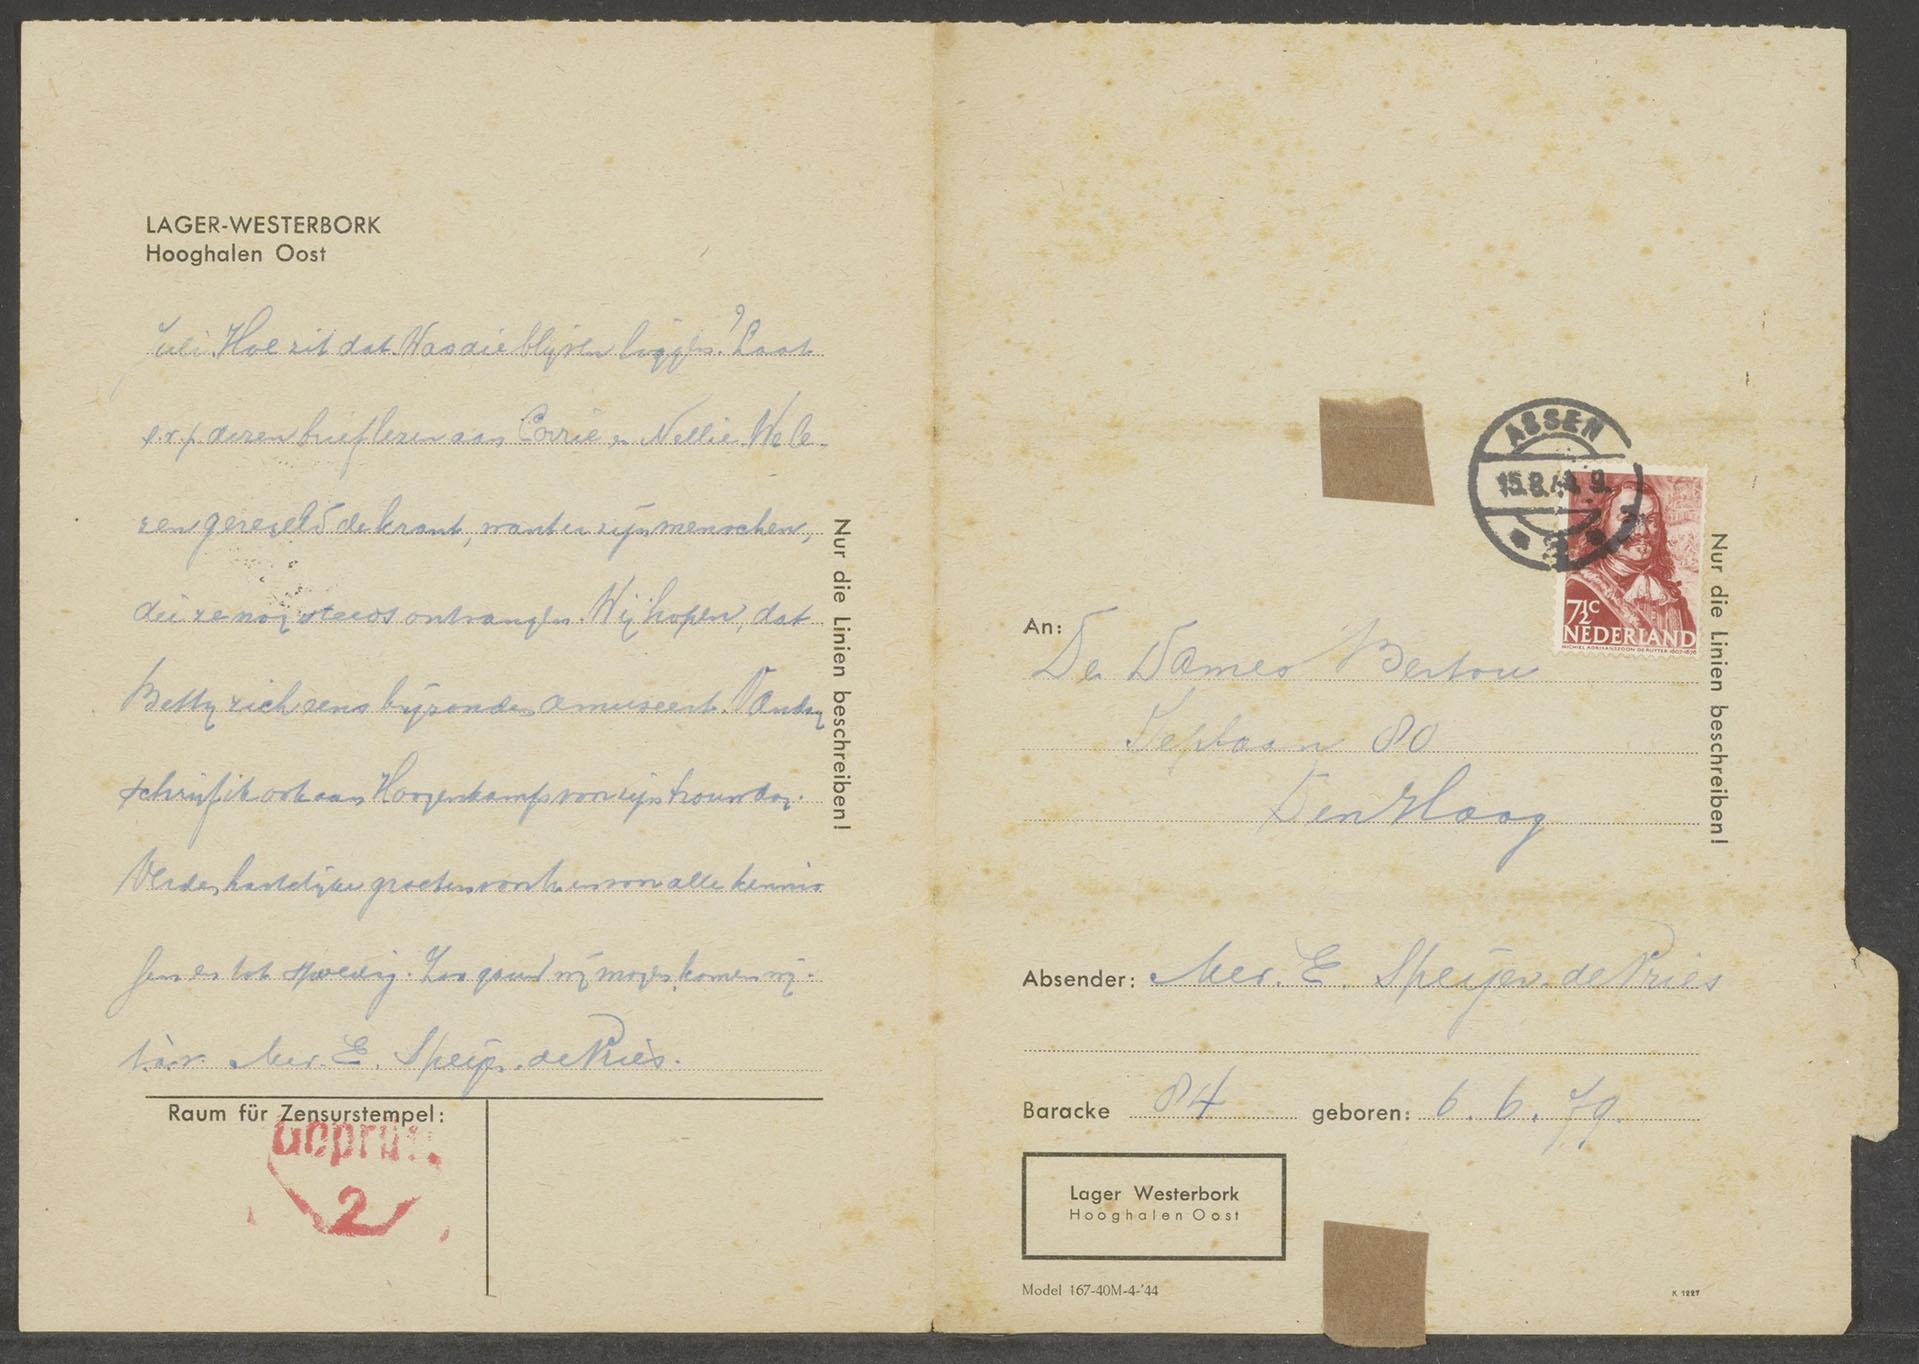 LAGER-WESTERBORK
Hooghalen Oost
Juli. Hoe zit dat. Was die blijven liggen? Laat
s.v.p. dezen brief lezen aan Corrie en Nellie. We le-
zen geregeld de krant, want er zijn menschen,
die ze nog steeds ontvangen. Wij hopen, dat
Betty zich eens bijzonder amuseert. Vandaag
schrijf ik ook aan Hoogenkamp voor zijn trouwdag.
Verder hartelijke groeten van h. en van alle kennis
sen en tot spoedig. Zoo gauw wij mogen, komen wij.
t.à.v. Mev. E. Speijer-de Vries.
Nur die Linien beschreiben!
Raum für Zensurstempel:
Geprüft
2
ASSEN
15.8.44. 9.
7½c
NEDERLAND
MICHIEL ADRIAANSZOON DE RUYTER 1607-1676
An: De Dames Bertou
80
Den Haag
Nur die Linien beschreiben!
Absender: Mev. E. Speijer-de Vries
Baracke 84 geboren: 6. 6. 79.
Lager Westerbork
Hooghalen Oost
Model 167-40M-4-'44
K 1227